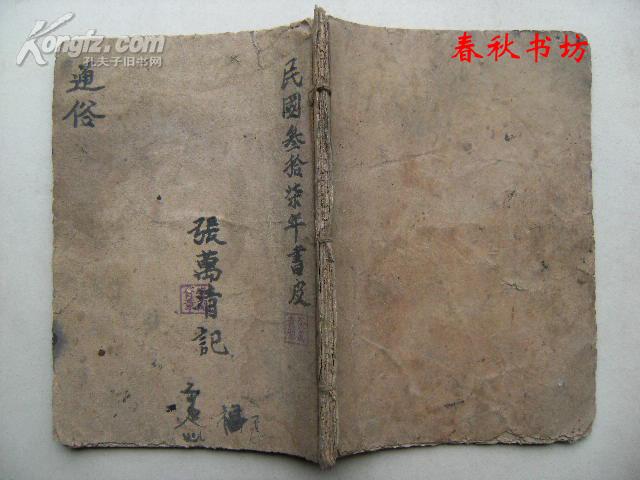 Kongfz.com
孔夫子旧书网
春秋书坊
民國叁拾柒年書皮
張萬清記
通俗